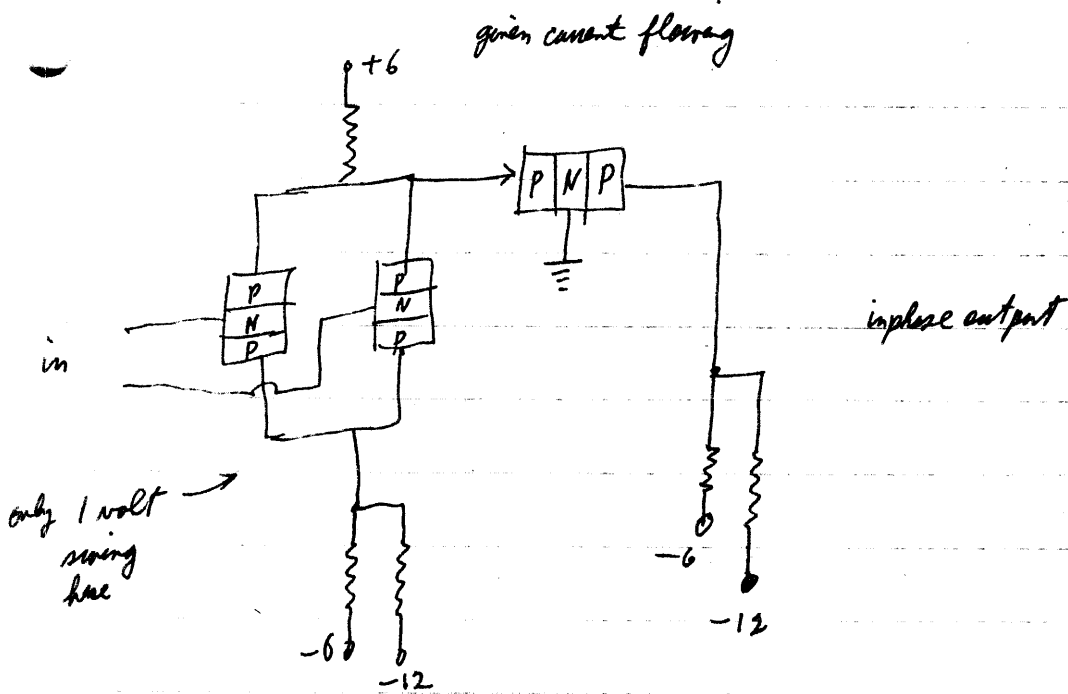 given current flowing
+6
P N P
P
N
P
P
N
P
in
inphase output
only 1 volt
swing
here
-6
-12
-6
-12